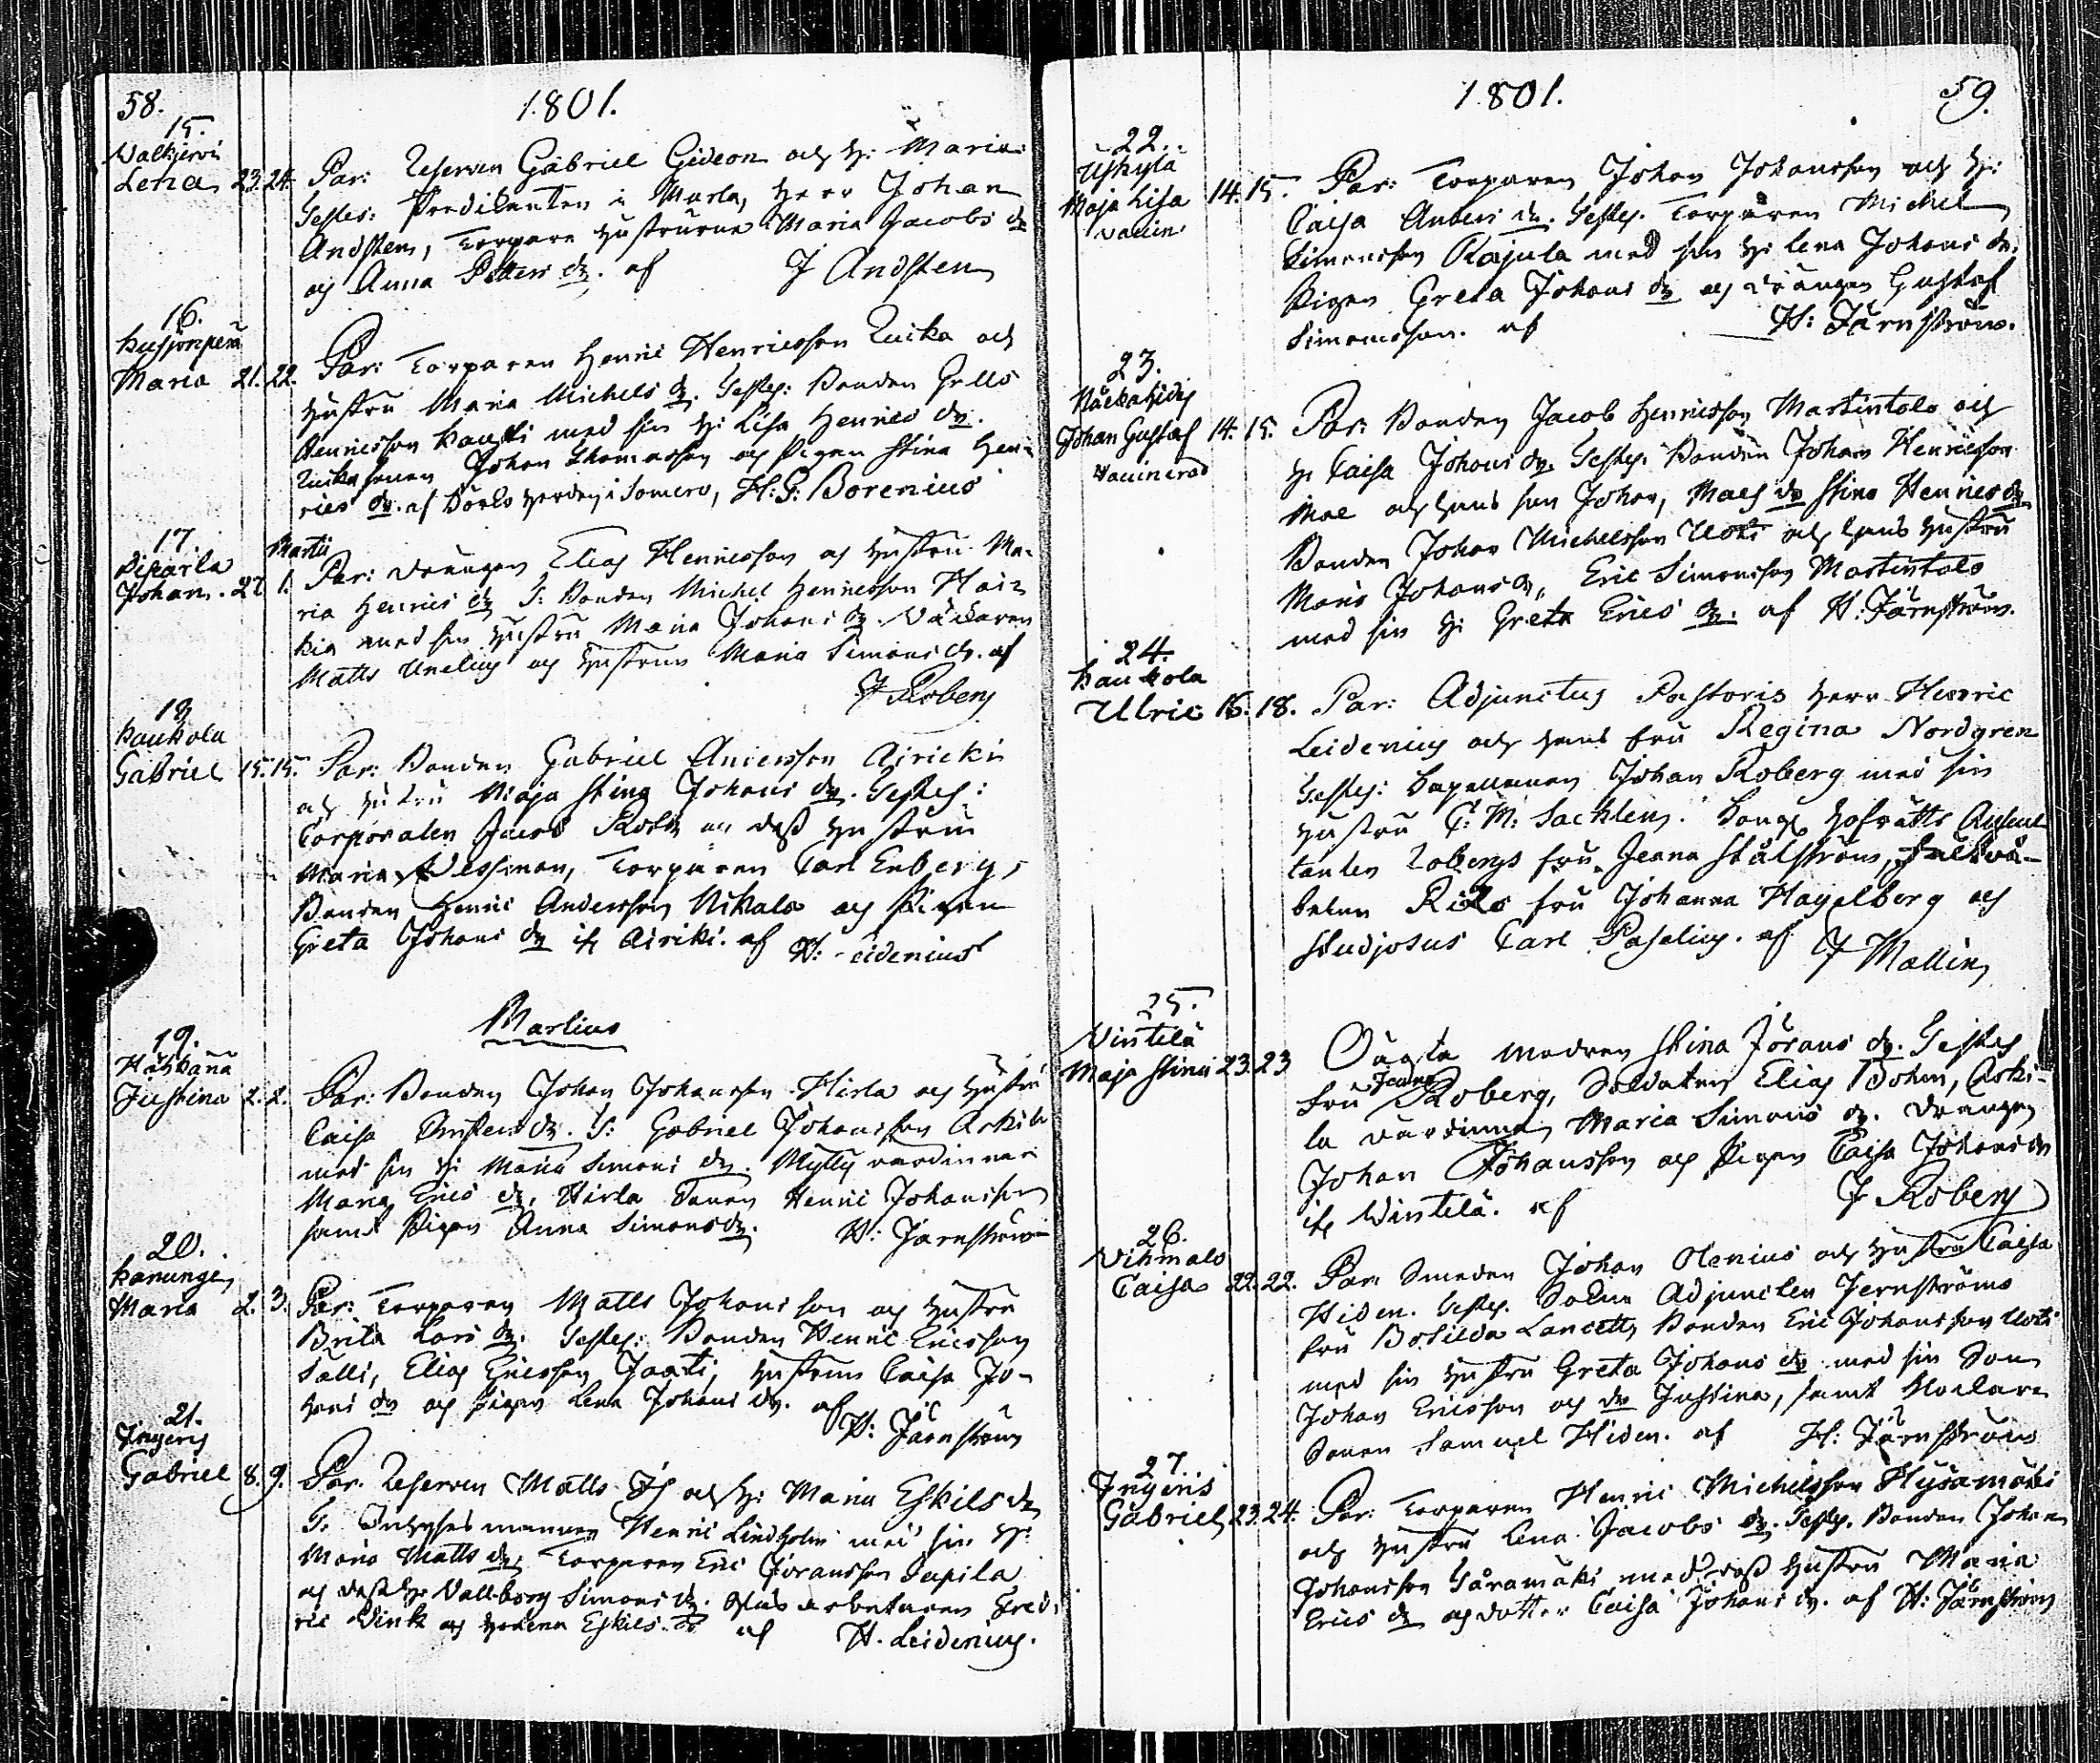 58.
1801.
15.
Walkjerwi
Lena 23. 24.
Par: Reserven Gabriel Gideon och H: Maria
Testes: Predikanten i Marla, Herr Johan
Andsten, Torpare Hustrurna Maria Jacobs dr
och Anna Petters dr. af J Andsten
16.
Maria 21. 22.
Par: Torparen Henric Henricsson Kuika och
Hustru Maria Michels dr. Testes: Bonden Grels
Henricsson med sin H: Lisa Henrics dr.
Johan Thomasson och Pigan Stina Hen-
rics dr. af i Somero, H: G: Borenius
17.
Martii
Johan. 27. 1.
Par: Drängen Elias Henricsson och Hustru Ma-
ria Henrics dr T: Bonden Michel Henricsson Hai-
kia med sin Hustru Maria Johans dr.
Matts Unelius och Hustrun Maria Simons dr. af
J Roberg
18
Kaukola
Gabriel 15. 15.
Par: Bonden Gabriel Andersson Airicki
och Hustru Maja Stina Johans dr. Testes:
Corporalen Jacob och dess Hustru
Maria Wessman, Torparen Carl Enberg,
Bonden Henric Andersson Nikala och Pigan
Greta Johans dr ifr Airiki. af H: Leidenius
Martius
19.
Justina 2. 2.
Par: Bonden Johan Johansson Hirla och Hustru
Caisa dr. T: Gabriel Johansson Askila
med sin H: Maria Simons dr. Mylly värdinnan
Maria Erics dr, Hirla Sonen Henric Johansson
samt Pigan Anna Simons dr. H: Järnström
20.
Kanungi
Maria 2. 3.
Par: Torparen Matts Johansson och Hustru
Brita Lars dr. Testes: Bonden Henric Ericsson
Salli, Elias Ericsson Jaati, Hustrun Caisa Jo-
hans dr och Pigan Lena Johans dr. af
H: Järnström
21.
Ingeris
Gabriel 8. 9.
Par. Reserven Matts och H: Maria Eskils dr
T. Henric Lindholm med sin H:
Maria Matts dr, Torparen Eric Jöransson Sapila
och dess H: Vallborg Simons dr. Fred-
ric Wink och Helena Eskils dr af H. Leidenius.
1801.
59.
22.
Maja Lisa 14. 15.
Par: Torparen Johan Johansson och H:
Caisa Anders dr. Testes. Torparen Michel
Simonsson Rajula med sin H: Lena Johans dr.
Pigan Greta Johans dr och Drängen Gustaf
Simonsson. af H: Järnström.
23.
Johan Gustaf 14. 15.
Par: Bonden Jacob Henricsson Martintalo och
H: Caisa Johans dr. Testes. Bonden Johan Henricsson
och hans son Johan, dr Stina Henrics dr,
Bonden Johan Michelsson Uoti och hans Hustru
Maria Johans dr, Eric Simonsson Martintalo
med sin H: Greta Erics dr. af H: Järnström.
24.
Kaukola
Ulric 16. 18.
Par: Adjunctus Pastoris Herr Henric
Leidenius och hans fru Regina Nordgren
Testes: Capellanen Johan Roberg med sin
Hustru C: M: Sacklen. Kongl Hofrätts Auscul-
tanten Robergs fru Jeana Stålström,
fru Johanna Hagelberg och
Studjosus Carl Paselius. af J Mallin
25.
Wintelä
Maja Stina 23. 23.
Oägta modren Stina Jörans dr. Testes
fru Jeana Roberg, Soldaten Elias Bohm, Aski-
la värdinna, Maria Simons dr. Drängen
Johan Johansson och Pigan Caisa Johans dr
ifr Wintelä. af J Roberg
26.
Wihmalo
Caisa 22. 22.
Par: Smeden Johan Olenius och Hustru Caisa
Hiden. Testes. Adjuncten Jernströms
fru Botilda Lancetts, Bonden Eric Johansson Uoti
med sin Hustru Greta Johans dr med sin Son
Johan Ericsson och dr Justina, samt Klockare
Sonen Samuel Hiden. af H: Järnström
27.
Ingeris
Gabriel 23. 24.
Par: Torparen Henric Michelsson Hysämäki
och Hustru Lena Jacobs dr. Testes. Bonden Johan
Johansson med dess Hustru Maria
Erics dr och dotter Caisa Johans dr. af H: Järnström